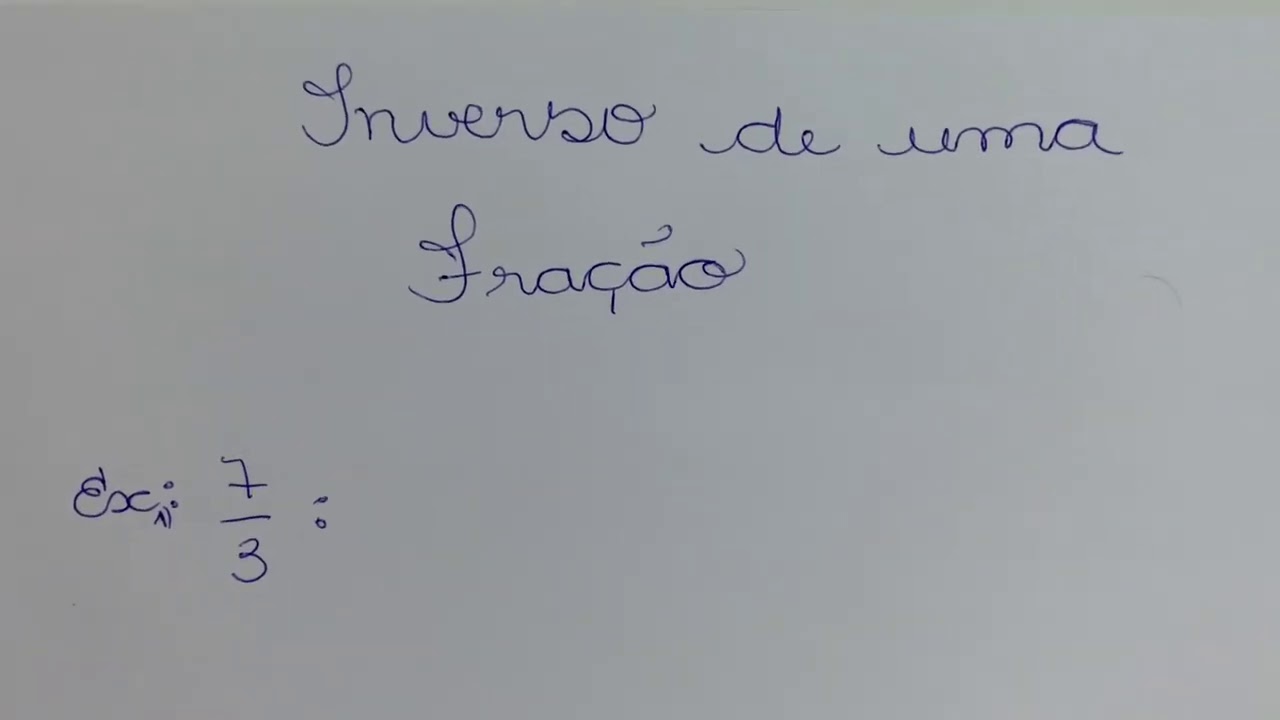 Inverso de uma
Fração
Ex1: 7/3 :